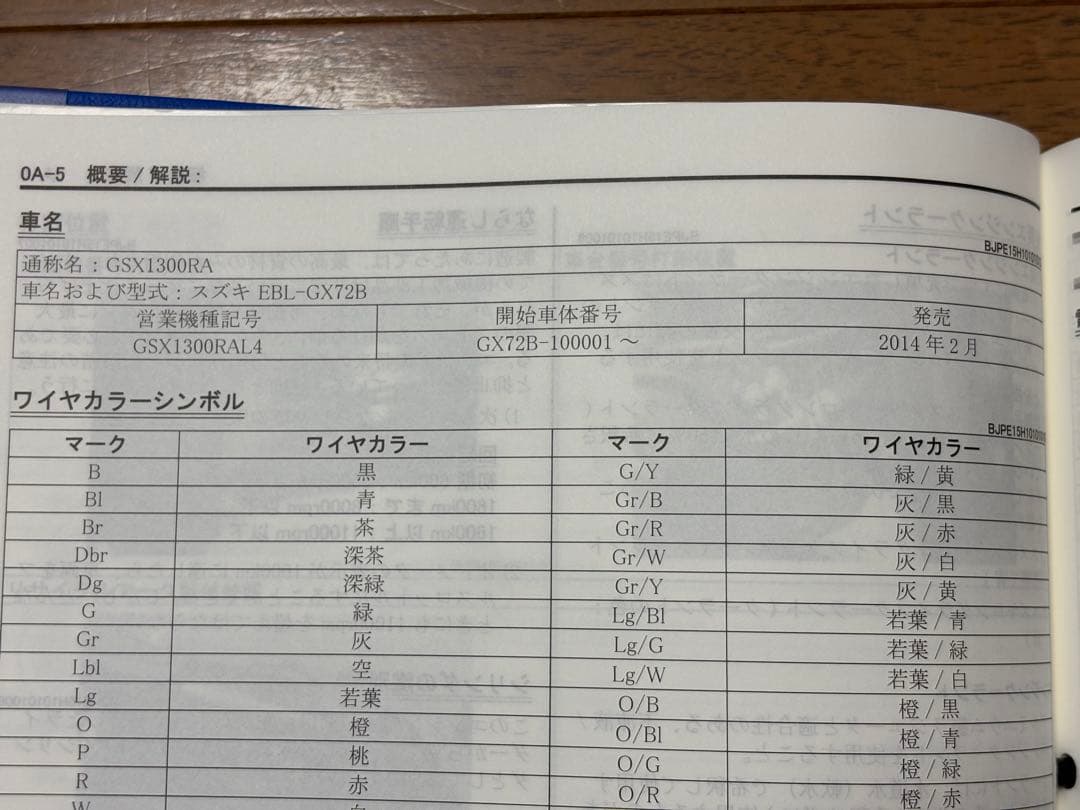 0A-5 概要 / 解説 :
車名
BJPE15H10101
通称名 : GSX1300RA
車名および型式 : スズキ EBL-GX72B
営業機種記号 開始車体番号 発売
GSX1300RAL4 GX72B-100001 ～ 2014 年 2 月
ワイヤカラーシンボル
BJPE15H10101
マーク ワイヤカラー マーク ワイヤカラー
B 黒 G/Y 緑 / 黄
Bl 青 Gr/B 灰 / 黒
Br 茶 Gr/R 灰 / 赤
Dbr 深茶 Gr/W 灰 / 白
Dg 深緑 Gr/Y 灰 / 黄
G 緑 Lg/Bl 若葉 / 青
Gr 灰 Lg/G 若葉 / 緑
Lbl 空 Lg/W 若葉 / 白
Lg 若葉 O/B 橙 / 黒
O 橙 O/Bl 橙 / 青
P 桃 O/G 橙 / 緑
R 赤 O/R 橙 / 赤
W 白